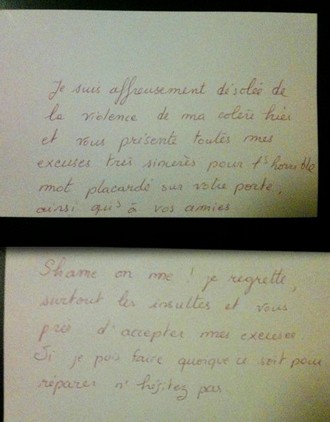 Je suis affreusement désolée de
la violence de ma colère hier
et vous présente toutes mes
excuses très sincères pour l'horrible
mot placardé sur votre porte,
ainsi qu'à vos amies
Shame on me ! je regrette,
surtout les insultes et vous
prie d'accepter mes excuses
Si je puis faire quoique ce soit pour
réparer n'hésitez pas